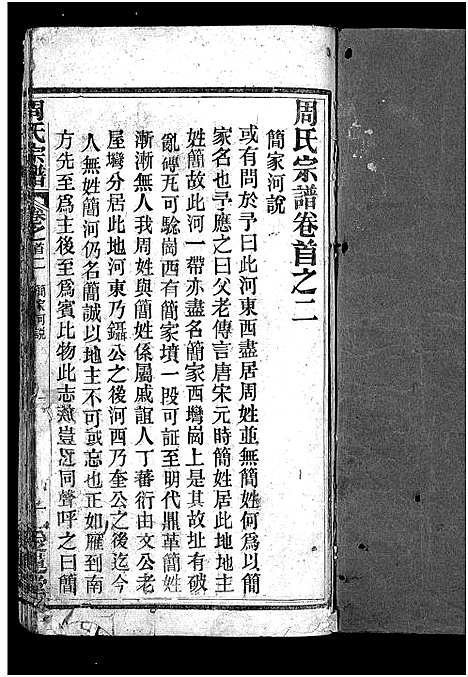 周氏宗譜卷首之二
簡家河說
或有問於予曰此河東西盡居周姓並無簡姓何為以簡
家名也予應之曰父老傳言唐宋元時簡姓居此地地主
姓簡故此河一帶亦盡名簡家西塆崗上是其故址有破
亂磚瓦可驗崗西有簡家墳一段可証至明代鼎革簡姓
漸漸無人我周姓與簡姓係屬戚誼人丁蕃衍由文公老
屋塆分居此地河東乃鑷公之後河西乃奎公之後迄今
人無姓簡河仍名簡誠以地主不可或忘也正如雁到南
方先至為主後至為賓比物此志愈豈近同聲呼之曰簡
周氏宗譜 卷之首二 簡家河說